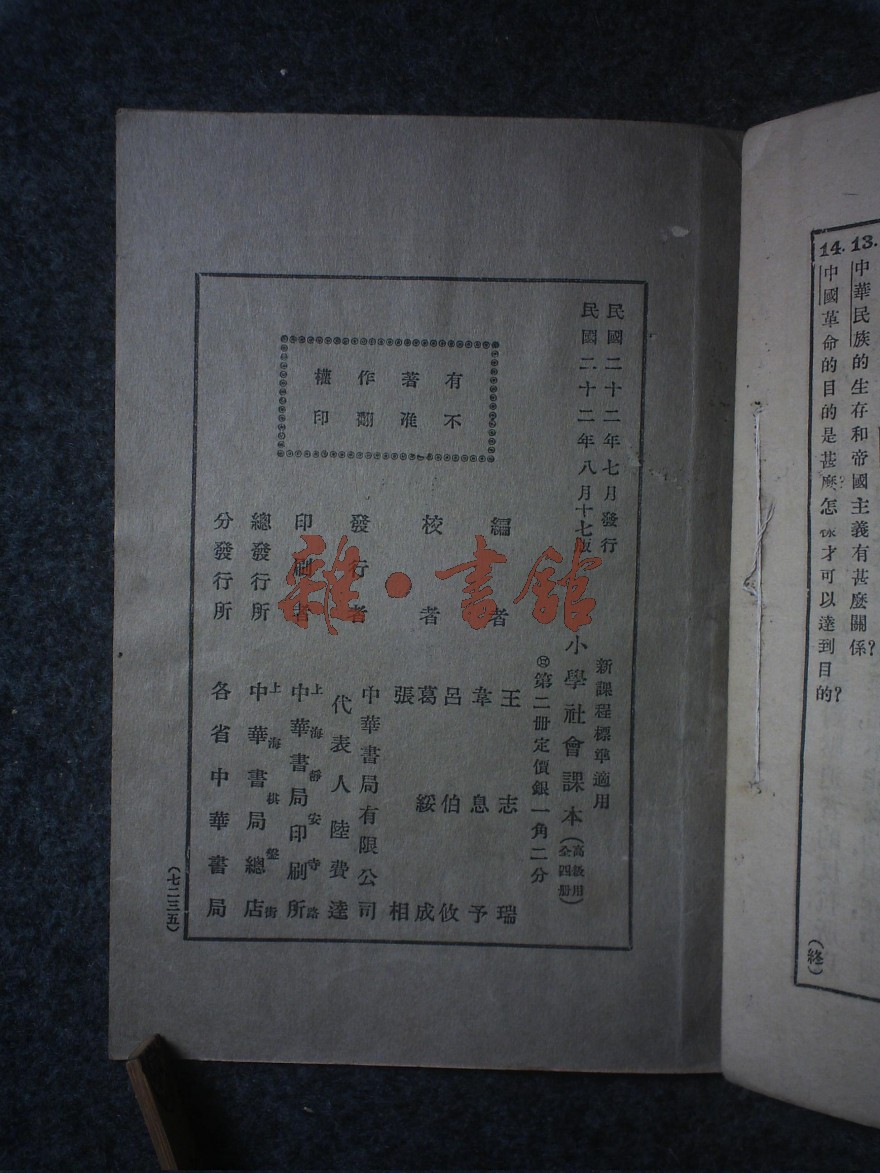 13.中華民族的生存和帝國主義有甚麼關係?
14.中國革命的目的是甚麼?怎樣才可以達到目的?
(終)
民國二十二年七月發行
民國二十二年八月十七版
新課程標準適用
小學社會課本(高級用全四冊)
第二冊定價銀一角二分
有不
著准
作翻
權印
編者 王志瑞
韋息予
校者 呂伯攸
葛綏成
張相
發行者 中華書局有限公司
代表人陸費逵
印刷者 上海靜安寺路
中華書局印刷所
總發行所 上海棋盤街
中華書局總店
分發行所 各省中華書局
(七二三五)
雜·書館